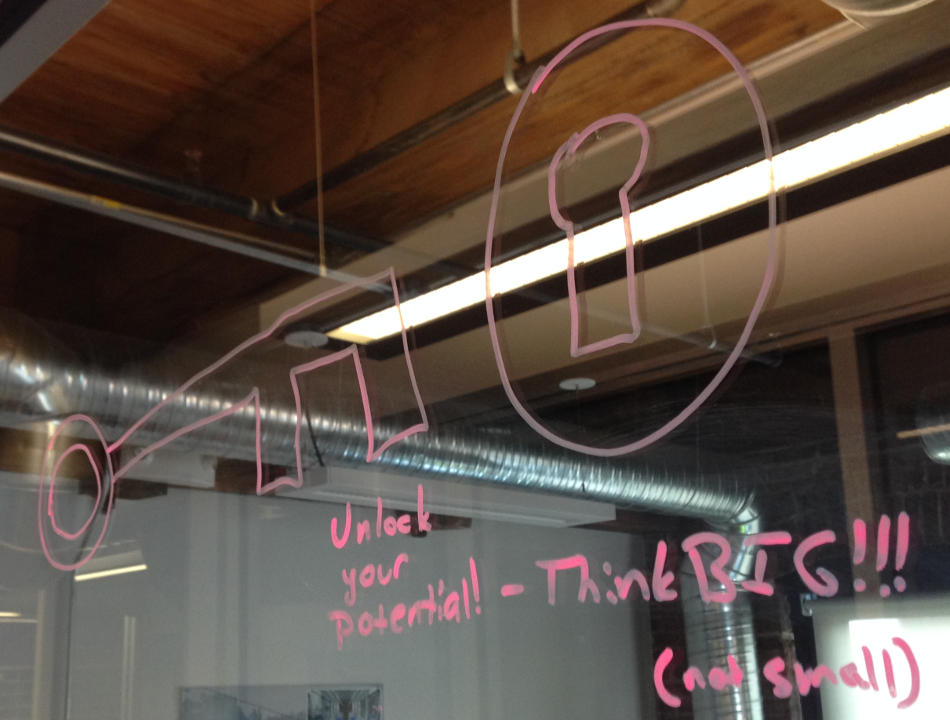 Unlock
your
potential! - Think BIG!!!
(not small)